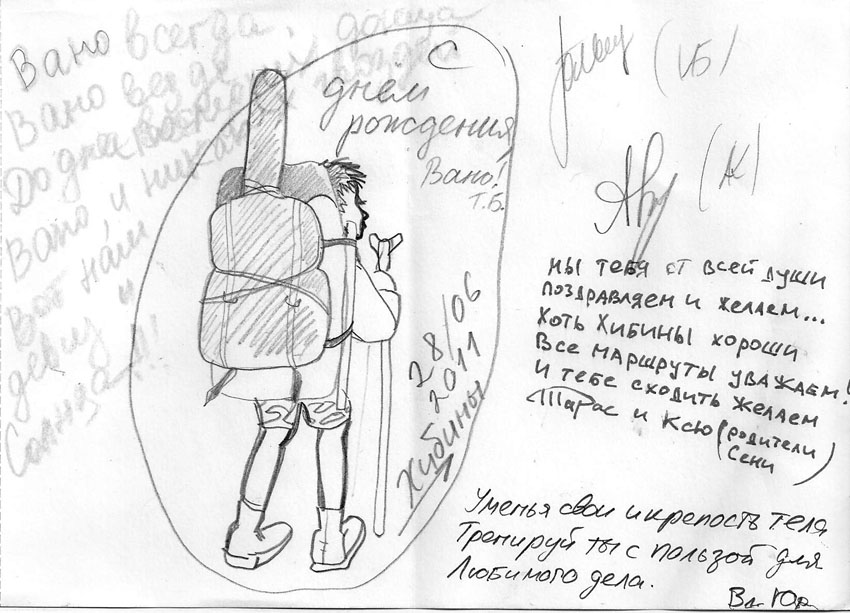 Вано всегда,
Вано везде
До дна
Вано, и
Вот нам
девиз и
Солнца!!!
С
днём
рождения,
Вано!
Т.Б.
28/06
2011
Хибины
(VБ)
(АК)
мы тебя от всей души
поздравляем и желаем...
Хоть Хибины хороши
Все маршруты уважаем!
И тебе сходить желаем
Тарас и Ксю (родители
Сени)
Уменья свои и крепость теля
Тренируй ты с пользой для
Любимого дела.
Вл. Юр.